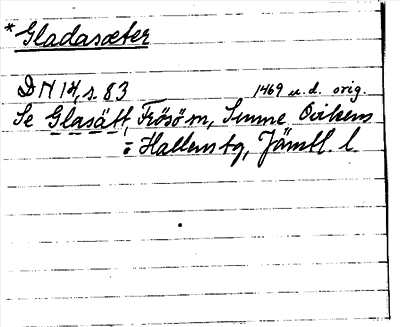 * Gladasæter
DN 14, s. 83 1469 u.d. orig.
Se Glasätt, Frösö sn, Sunne Ovikens
o. Hallens tg, Jämtl. l.